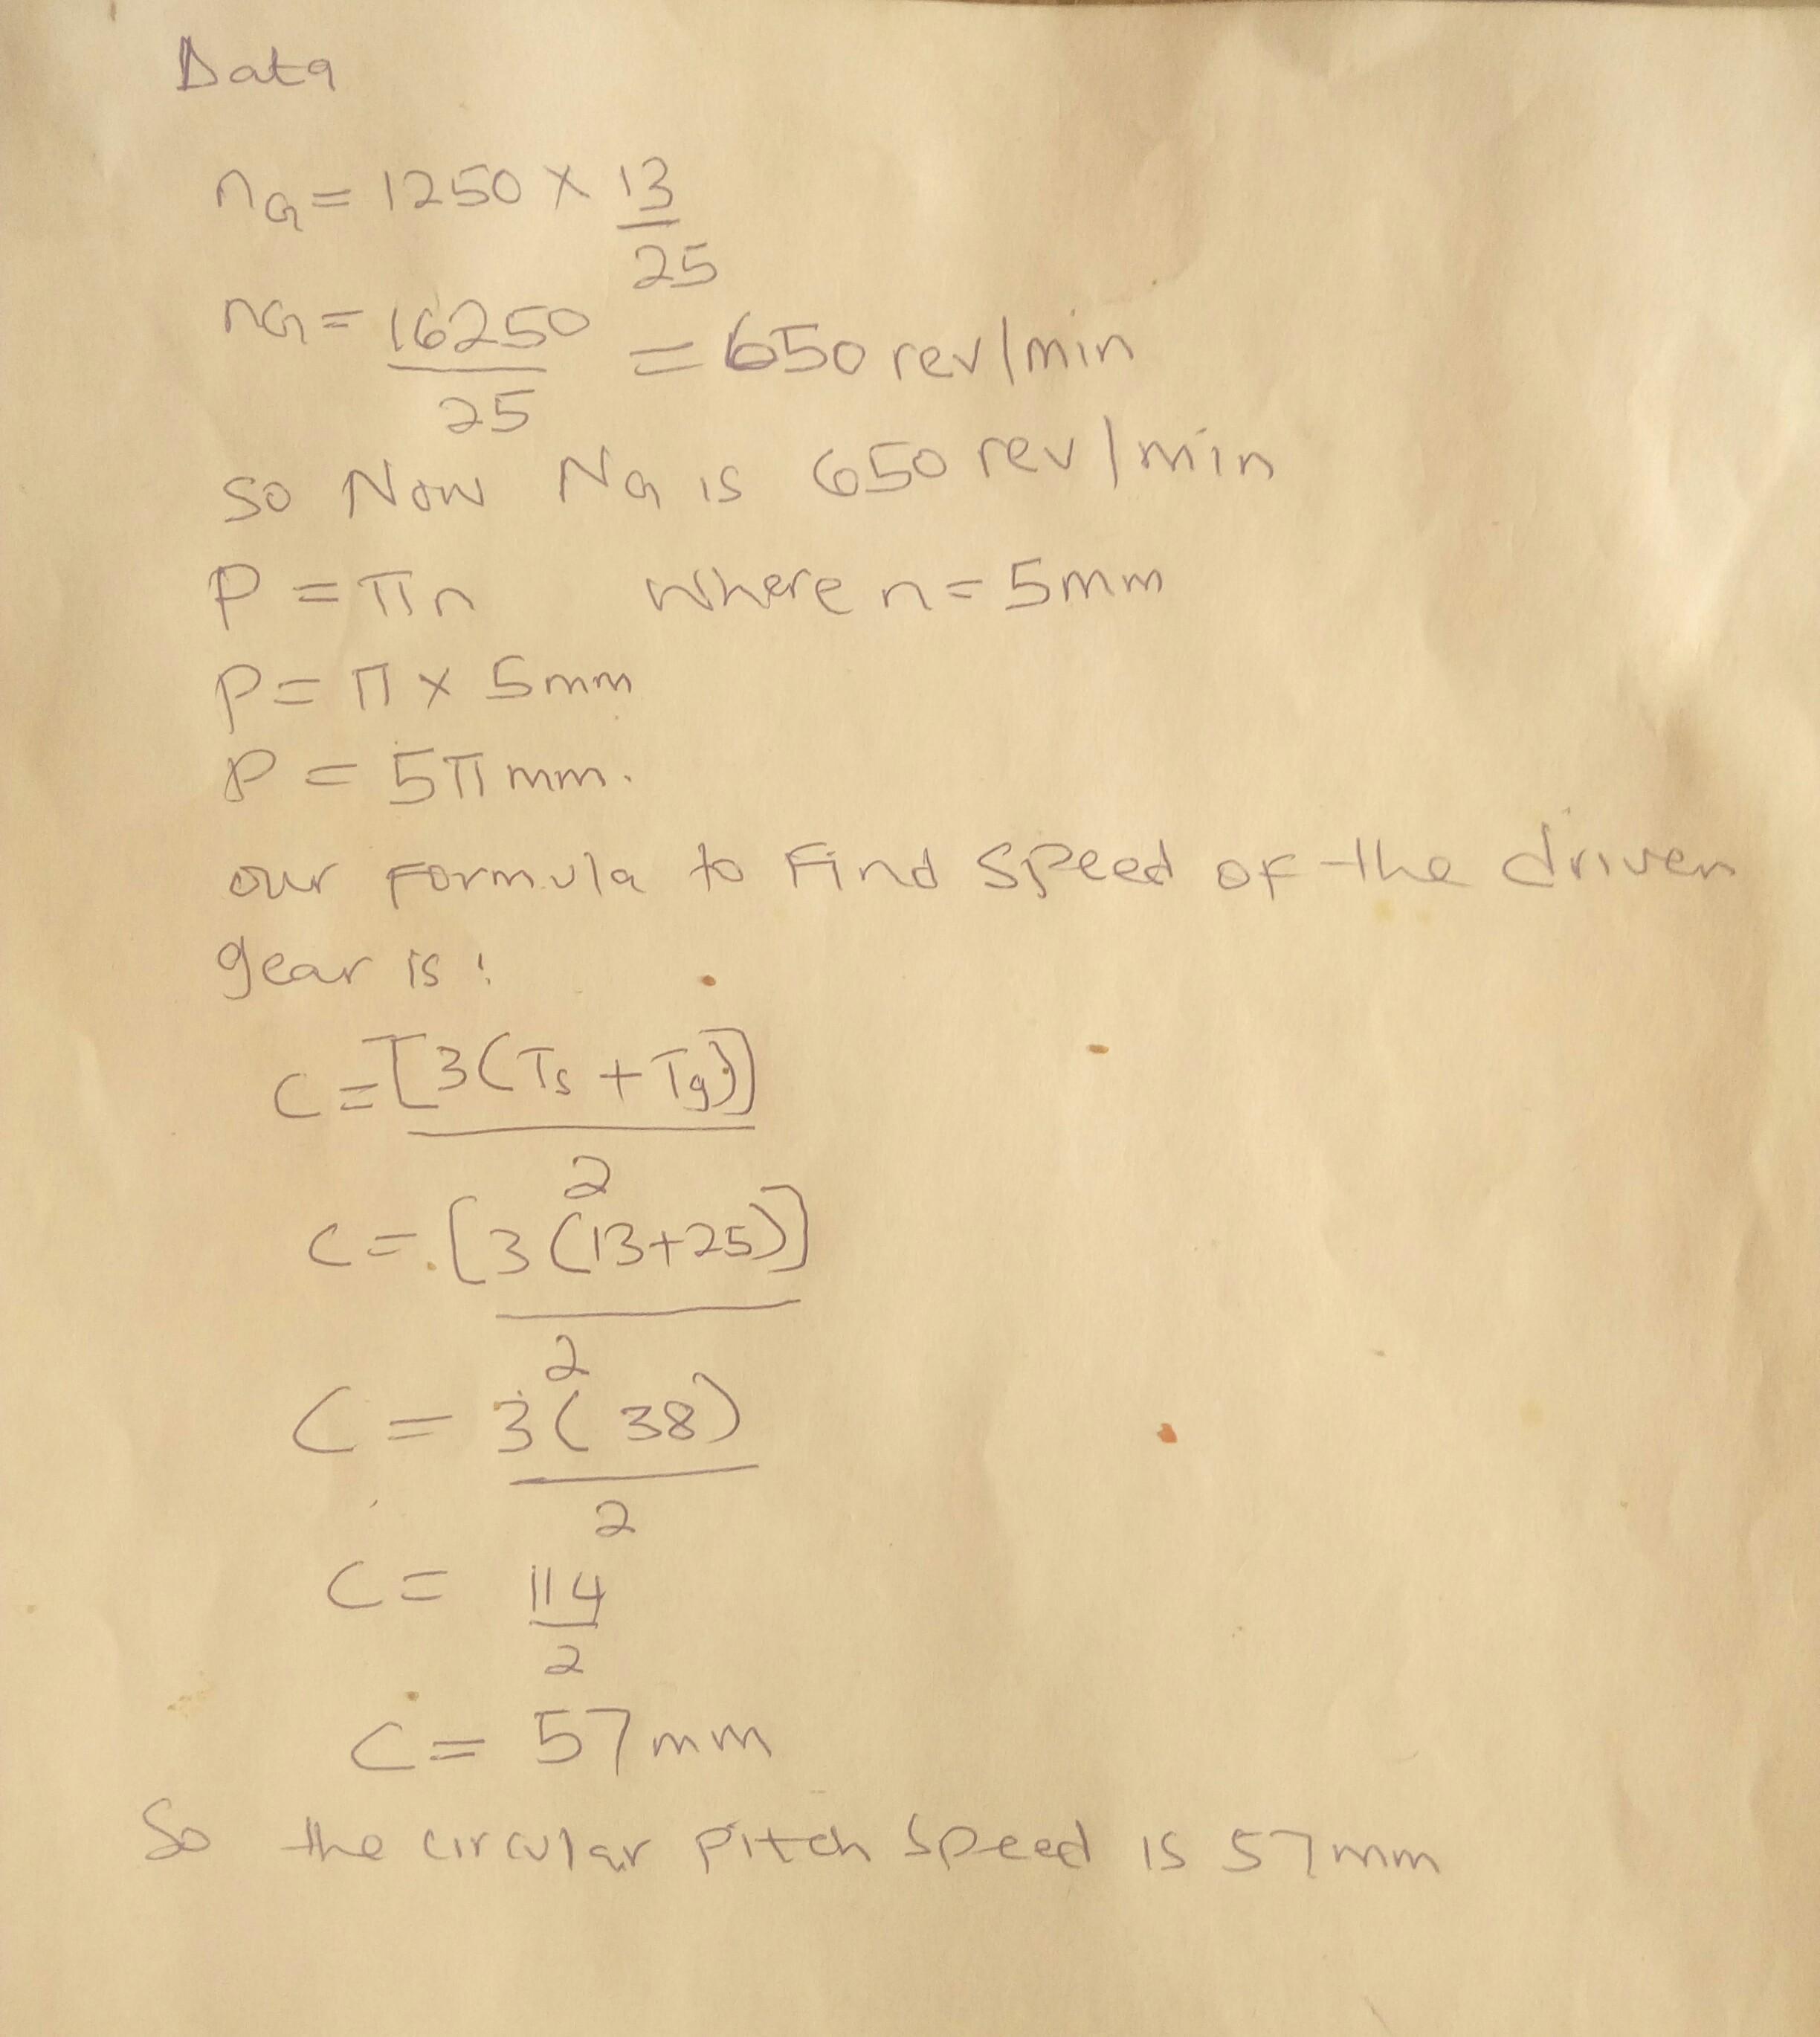 Data
nG = 1250 × 13/25
nG = 16250/25 = 650 rev/min
so Now NG is 650 rev/min
P = πn where n = 5mm
P = π × 5mm
P = 5π mm.
our formula to find speed of the driven
gear is:
C = [3(Ts + Tg)]/2
C = [3(13+25)]/2
C = 3(38)/2
C = 114/2
C = 57mm
So the circular pitch speed is 57mm